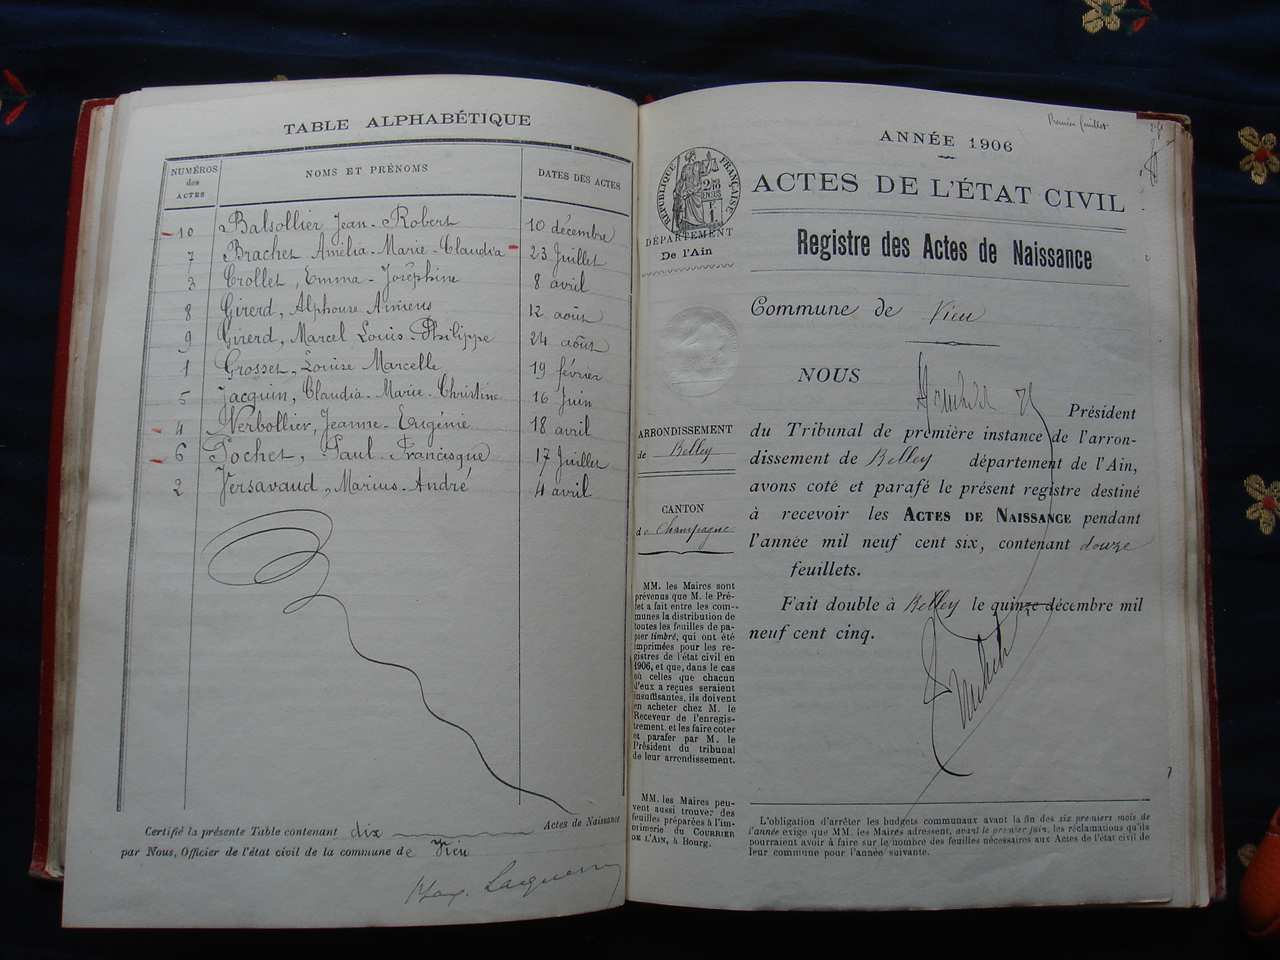 TABLE ALPHABÉTIQUE
NUMÉROS des ACTES NOMS ET PRÉNOMS DATES DES ACTES
10 Balsollier Jean-Robert 10 décembre
7 Brachet Amélia-Marie-Claudia 23 Juillet
3 Crollet, Emma-Joséphine 8 avril
8 Girerd, Alphonse Aimeus 12 août
9 Girerd, Marcel Louis-Philippe 24 août
1 Grosset, Louise Marcelle 19 février
5 Jacquin, Claudia-Marie-Christine 16 Juin
4 Nerbollier, Jeanne-Eugénie 18 avril
6 Pochet, Paul-Francisque 17 Juillet
2 Versavaud, Marius-André 4 avril
Certifié la présente Table contenant dix Actes de Naissance
par Nous, Officier de l'état civil de la commune de Vieu
Premier feuillet
ANNÉE 1906
ACTES DE L'ÉTAT CIVIL
Registre des Actes de Naissance
RÉPUBLIQUE FRANÇAISE
DÉPARTEMENT
De l'Ain
Commune de Vieu
NOUS
Président
du Tribunal de première instance de l'arron-
dissement de Belley département de l'Ain,
avons coté et parafé le présent registre destiné
à recevoir les ACTES DE NAISSANCE pendant
l'année mil neuf cent six, contenant douze
feuillets.
Fait double à Belley le quinze décembre mil
neuf cent cinq.
ARRONDISSEMENT
de Belley
CANTON
de Champagne
MM. les Maires sont
prévenus que M. le Pré-
fet a fait entre les com-
munes la distribution de
toutes les feuilles de pa-
pier timbré, qui ont été
imprimées pour les re-
gistres de l'état civil en
1906, et que, dans le cas
où celles que chacun
d'eux a reçues seraient
insuffisantes, ils doivent
en acheter chez M. le
Receveur de l'enregis-
trement, et les faire coter
et parafer par M. le
Président du tribunal
de leur arrondissement.
MM. les Maires peu-
vent aussi trouver des
feuilles préparées à l'im-
primerie du COURRIER
DE L'AIN, à Bourg.
L'obligation d'arrêter les budgets communaux avant la fin des six premiers mois de
l'année exige que MM. les Maires adressent, avant le premier juin, les réclamations qu'ils
pourraient avoir à faire sur le nombre des feuilles nécessaires aux Actes de l'état civil de
leur commune pour l'année suivante.